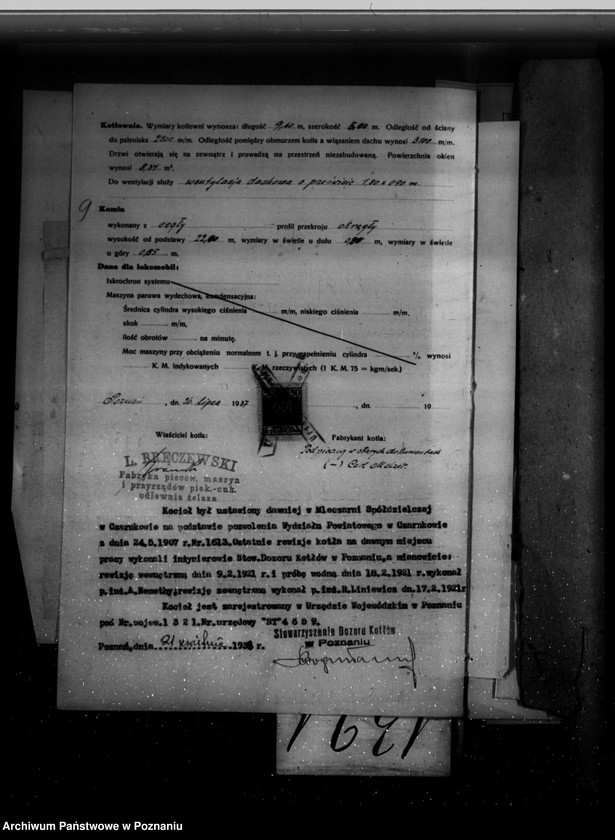 Kotłownia. Wymiary kotłowni wynoszą: długość 9,60 m, szerokość 5,00 m. Odległość od ściany
do paleniska 2200 m/m. Odległość pomiędzy obmurzem kotła a wiązaniem dachu wynosi 3,100 m/m.
Drzwi otwierają się na zewnątrz i prowadzą na przestrzeń niezabudowaną. Powierzchnia okien
wynosi m².
Do wentylacji służy wentylacja dachowa o prześwicie 1,80 x 0,90 m.
9 Komin
wykonany z cegły profil przekroju okrągły
wysokość od podstawy 22,00 m, wymiary w świetle u dołu m, wymiary w świetle
u góry 0,85 m.
Dane dla lokomobil:
Iskrochron systemu
Maszyna parowa wydechowa, kondensacyjna:
Średnica cylindra wysokiego ciśnienia m/m, niskiego ciśnienia m/m.
skok m/m,
ilość obrotów na minutę.
Moc maszyny przy obciążeniu normalnem t. j. przy napełnieniu cylindra % wynosi
K. M. indykowanych K. M. rzeczywistych (1 K. M. 75 = kgm/sek.)
Poznań, dn. 26 lipca 1937 , dn. 19
Właściciel kotła: Fabrykant kotła:
L. BRĘCZEWSKI
Fabryka pieców, maszyn
i przyrządów piek.-cuk.
odlewnia żelaza
Podpisany w starych dokumentach
(-) Carl
Kocioł był ustawiony dawniej w Mleczarni Spółdzielczej
w Czarnkowie na podstawie pozwolenia Wydziału Powiatowego w Czarnkowie
z dnia 24.5.1907 r.Nr.1613.Ostatnie rewizje kotła na dawnym miejscu
pracy wykonali inżynierowie Stow.Dozoru Kotłów w Poznaniu,a mianowicie:
rewizję wewnętrzną dnia 9.2.1921 r.i próbę wodną dnia 18.2.1921 r.wykonał
p.inż.A.Nemethy,rewizję zewnętrzną wykonał p.inż.R.Liniewicz dn.17.2.1921r
Kocioł jest zarejestrowany w Urzędzie Wojewódzkim w Poznaniu
pod Nr.wojew.1 3 2 1.Nr.urzędowy "ST" 4 6 0 9.
Stowarzyszenie Dozoru Kotłów
w Poznaniu
Poznań,dnia 21 kwietnia 1938 r.
1691
Archiwum Państwowe w Poznaniu